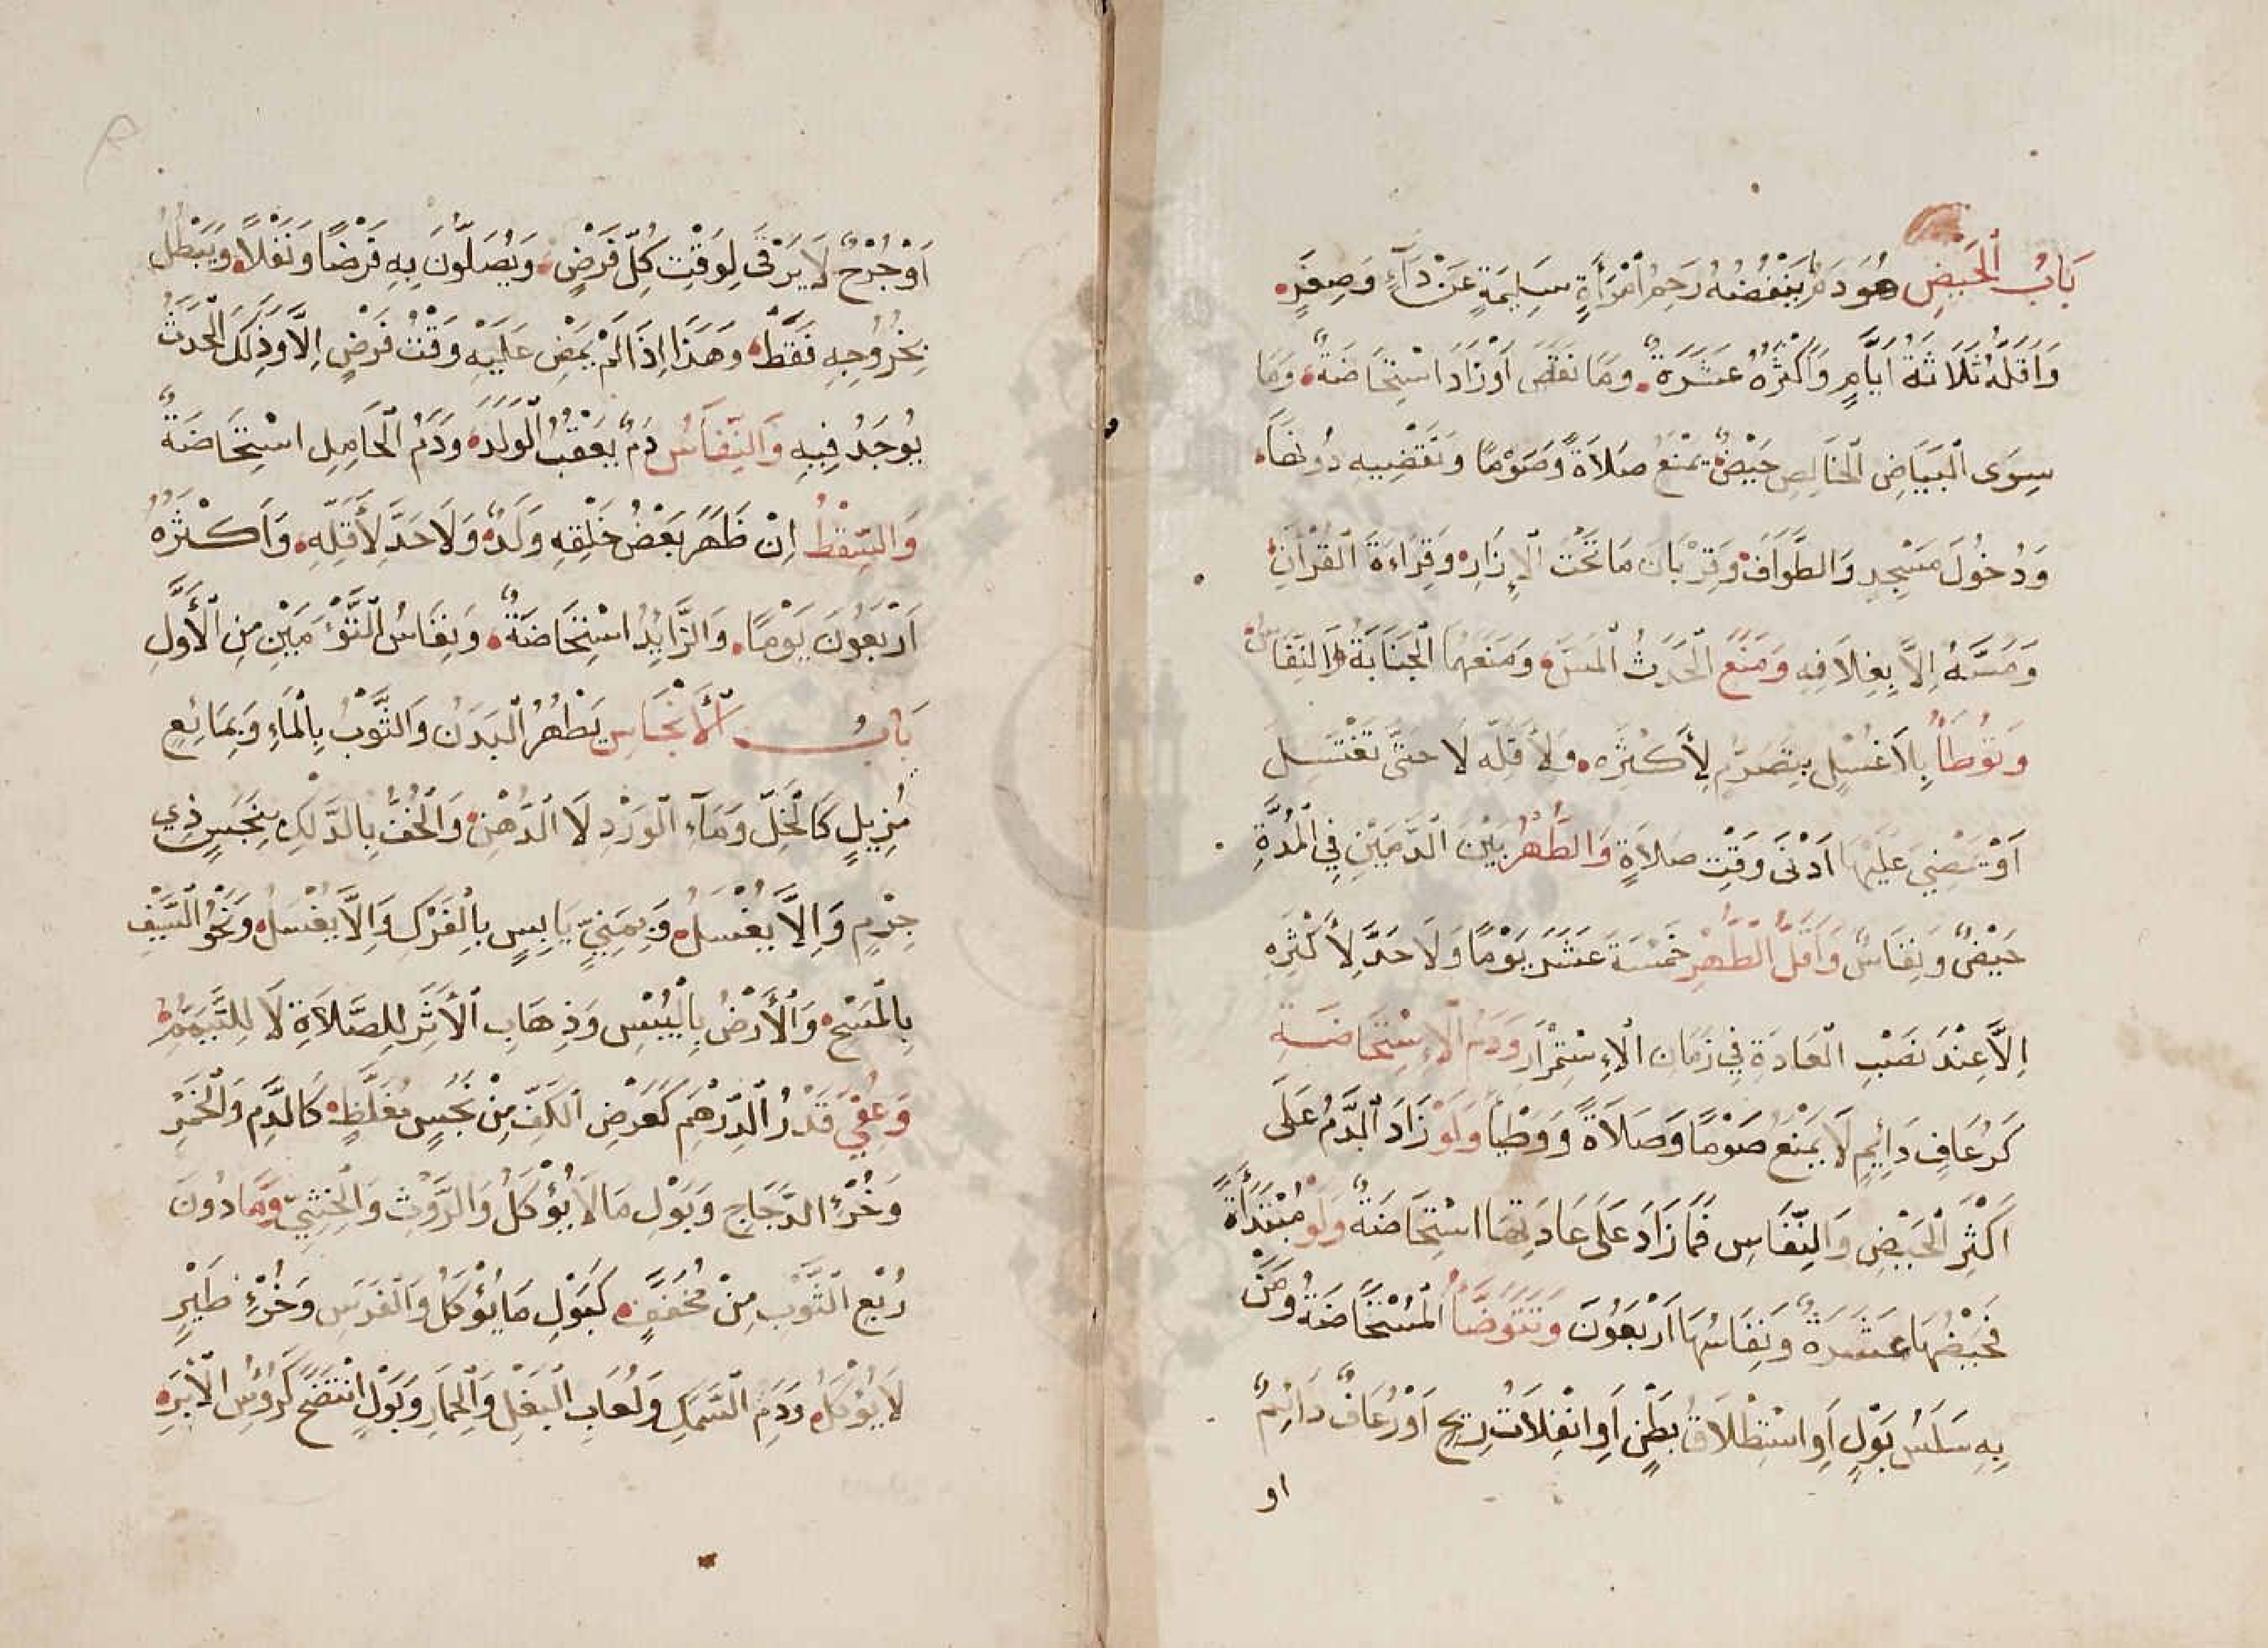 بَابُ الْحَيْضِ هُوَ دَمٌ يَنْفُضُهُ رَحِمُ امْرَأَةٍ سَلِيمَةٍ عَنْ دَآءٍ وَصِغَرٍ
وَأَقَلُّهُ ثَلَاثَةُ أَيَّامٍ وَأَكْثَرُهُ عَشَرَةٌ وَمَا نَقَصَ أَوْ زَادَ اسْتِحَاضَةٌ وَمَا
سِوَى الْبَيَاضِ الْخَالِصِ حَيْضٌ يَمْنَعُ صَلَاةً وَصَوْمًا وَتَقْضِيهِ دُونَهَا
وَدُخُولَ مَسْجِدٍ وَالطَّوَافَ وَقِرْبَانَ مَا تَحْتَ الْإِزَارِ وَقِرَاءَةَ الْقُرْآنِ
وَمَسَّهُ إِلَّا بِغِلَافِهِ وَمَنَعَ الْحَدَثُ الْمَسَّ وَمَنَعَهُمَا الْجَنَابَةُ وَالنِّفَاسُ
وَتُوطَأُ بِلَا غُسْلٍ بِتَصَرُّمٍ لِأَكْثَرِهِ وَلِأَقَلِّهِ لَا حَتَّى تَغْتَسِلَ
أَوْ يَمْضِيَ عَلَيْهَا أَدْنَى وَقْتِ صَلَاةٍ وَالطُّهْرُ بَيْنَ الدَّمَيْنِ فِي الْمُدَّةِ
حَيْضٌ وَنِفَاسٌ وَأَقَلُّ الطُّهْرِ خَمْسَةَ عَشَرَ يَوْمًا وَلَا حَدَّ لِأَكْثَرِهِ
إِلَّا عِنْدَ نَصْبِ الْعَادَةِ فِي زَمَانِ الْإِسْتِمْرَارِ وَدَمُ الْإِسْتِحَاضَةِ
كَرُعَافٍ دَائِمٍ لَا يَمْنَعُ صَوْمًا وَصَلَاةً وَوَطْيًا وَلَوْ زَادَ الدَّمُ عَلَى
أَكْثَرِ الْحَيْضِ وَالنِّفَاسِ فَمَا زَادَ عَلَى عَادَتِهَا اسْتِحَاضَةٌ وَلَوْ مُبْتَدَأَةً
فَحَيْضُهَا عَشَرَةٌ وَنِفَاسُهَا أَرْبَعُونَ وَتَتَوَضَّأُ الْمُسْتَحَاضَةُ وَمَنْ
بِهِ سَلَسُ بَوْلٍ أَوِ اسْتِطْلَاقُ بَطْنٍ أَوِ انْفِلَاتُ رِيحٍ أَوْ رُعَافٌ دَائِمٌ
او
أَوْ جُرْحٌ لَا يَرْقَى لِوَقْتِ كُلِّ فَرْضٍ وَيُصَلُّونَ بِهِ فَرْضًا وَنَفْلًا وَيَبْطُلُ
بِخُرُوجِهِ فَقَطْ وَهَذَا إِذَا لَمْ يَمْضِ عَلَيْهِ وَقْتُ فَرْضٍ إِلَّا وَذَلِكَ الْحَدَثُ
يُوجَدُ فِيهِ وَالنِّفَاسُ دَمٌ يَعْقُبُ الْوَلَدَ وَدَمُ الْحَامِلِ اسْتِحَاضَةٌ
وَالسِّقْطُ إِنْ ظَهَرَ بَعْضُ خَلْقِهِ وَلَدٌ وَلَا حَدَّ لِأَقَلِّهِ وَأَكْثَرُهُ
أَرْبَعُونَ يَوْمًا وَالزَّايِدُ اسْتِحَاضَةٌ وَنِفَاسُ التَّوْءَمَيْنِ مِنَ الْأَوَّلِ
بَابُ الْأَنْجَاسِ يَطْهُرُ الْبَدَنُ وَالثَّوْبُ بِالْمَاءِ وَبِمَائِعٍ
مُزِيلٍ كَالْخَلِّ وَمَآءِ الْوَرْدِ لَا الدُّهْنِ وَالْخُفُّ بِالدَّلْكِ بِنَجَسٍ ذِي
جِرْمٍ وَإِلَّا يُغْسَلُ وَبِمَنِيٍّ يَابِسٍ بِالْفَرْكِ وَإِلَّا يُغْسَلُ وَنَحْوُ السَّيْفِ
بِالْمَسْحِ وَالْأَرْضُ بِالْيُبْسِ وَذِهَابِ الْأَثَرِ لِلصَّلَاةِ لَا لِلتَّيَمُّمِ
وَعُفِيَ قَدْرُ الدِّرْهَمِ كَعَرْضِ الْكَفِّ مِنْ نَجَسٍ مُغَلَّظٍ كَالدَّمِ وَالْخَمْرِ
وَخُرْءِ الدَّجَاجِ وَبَوْلِ مَا لَا يُؤْكَلُ وَالرَّوْثِ وَالْخِثْيِ وَمَا دُونَ
رُبْعِ الثَّوْبِ مِنْ مُخَفَّفٍ كَبَوْلِ مَا يُؤْكَلُ وَالْفَرَسِ وَخُرْءِ طَيْرٍ
لَا يُؤْكَلُ وَدَمِ السَّمَكِ وَلُعَابِ الْبَغْلِ وَالْحِمَارِ وَبَوْلٍ انْتَضَحَ كَرُؤُسِ الْأِبَرِ